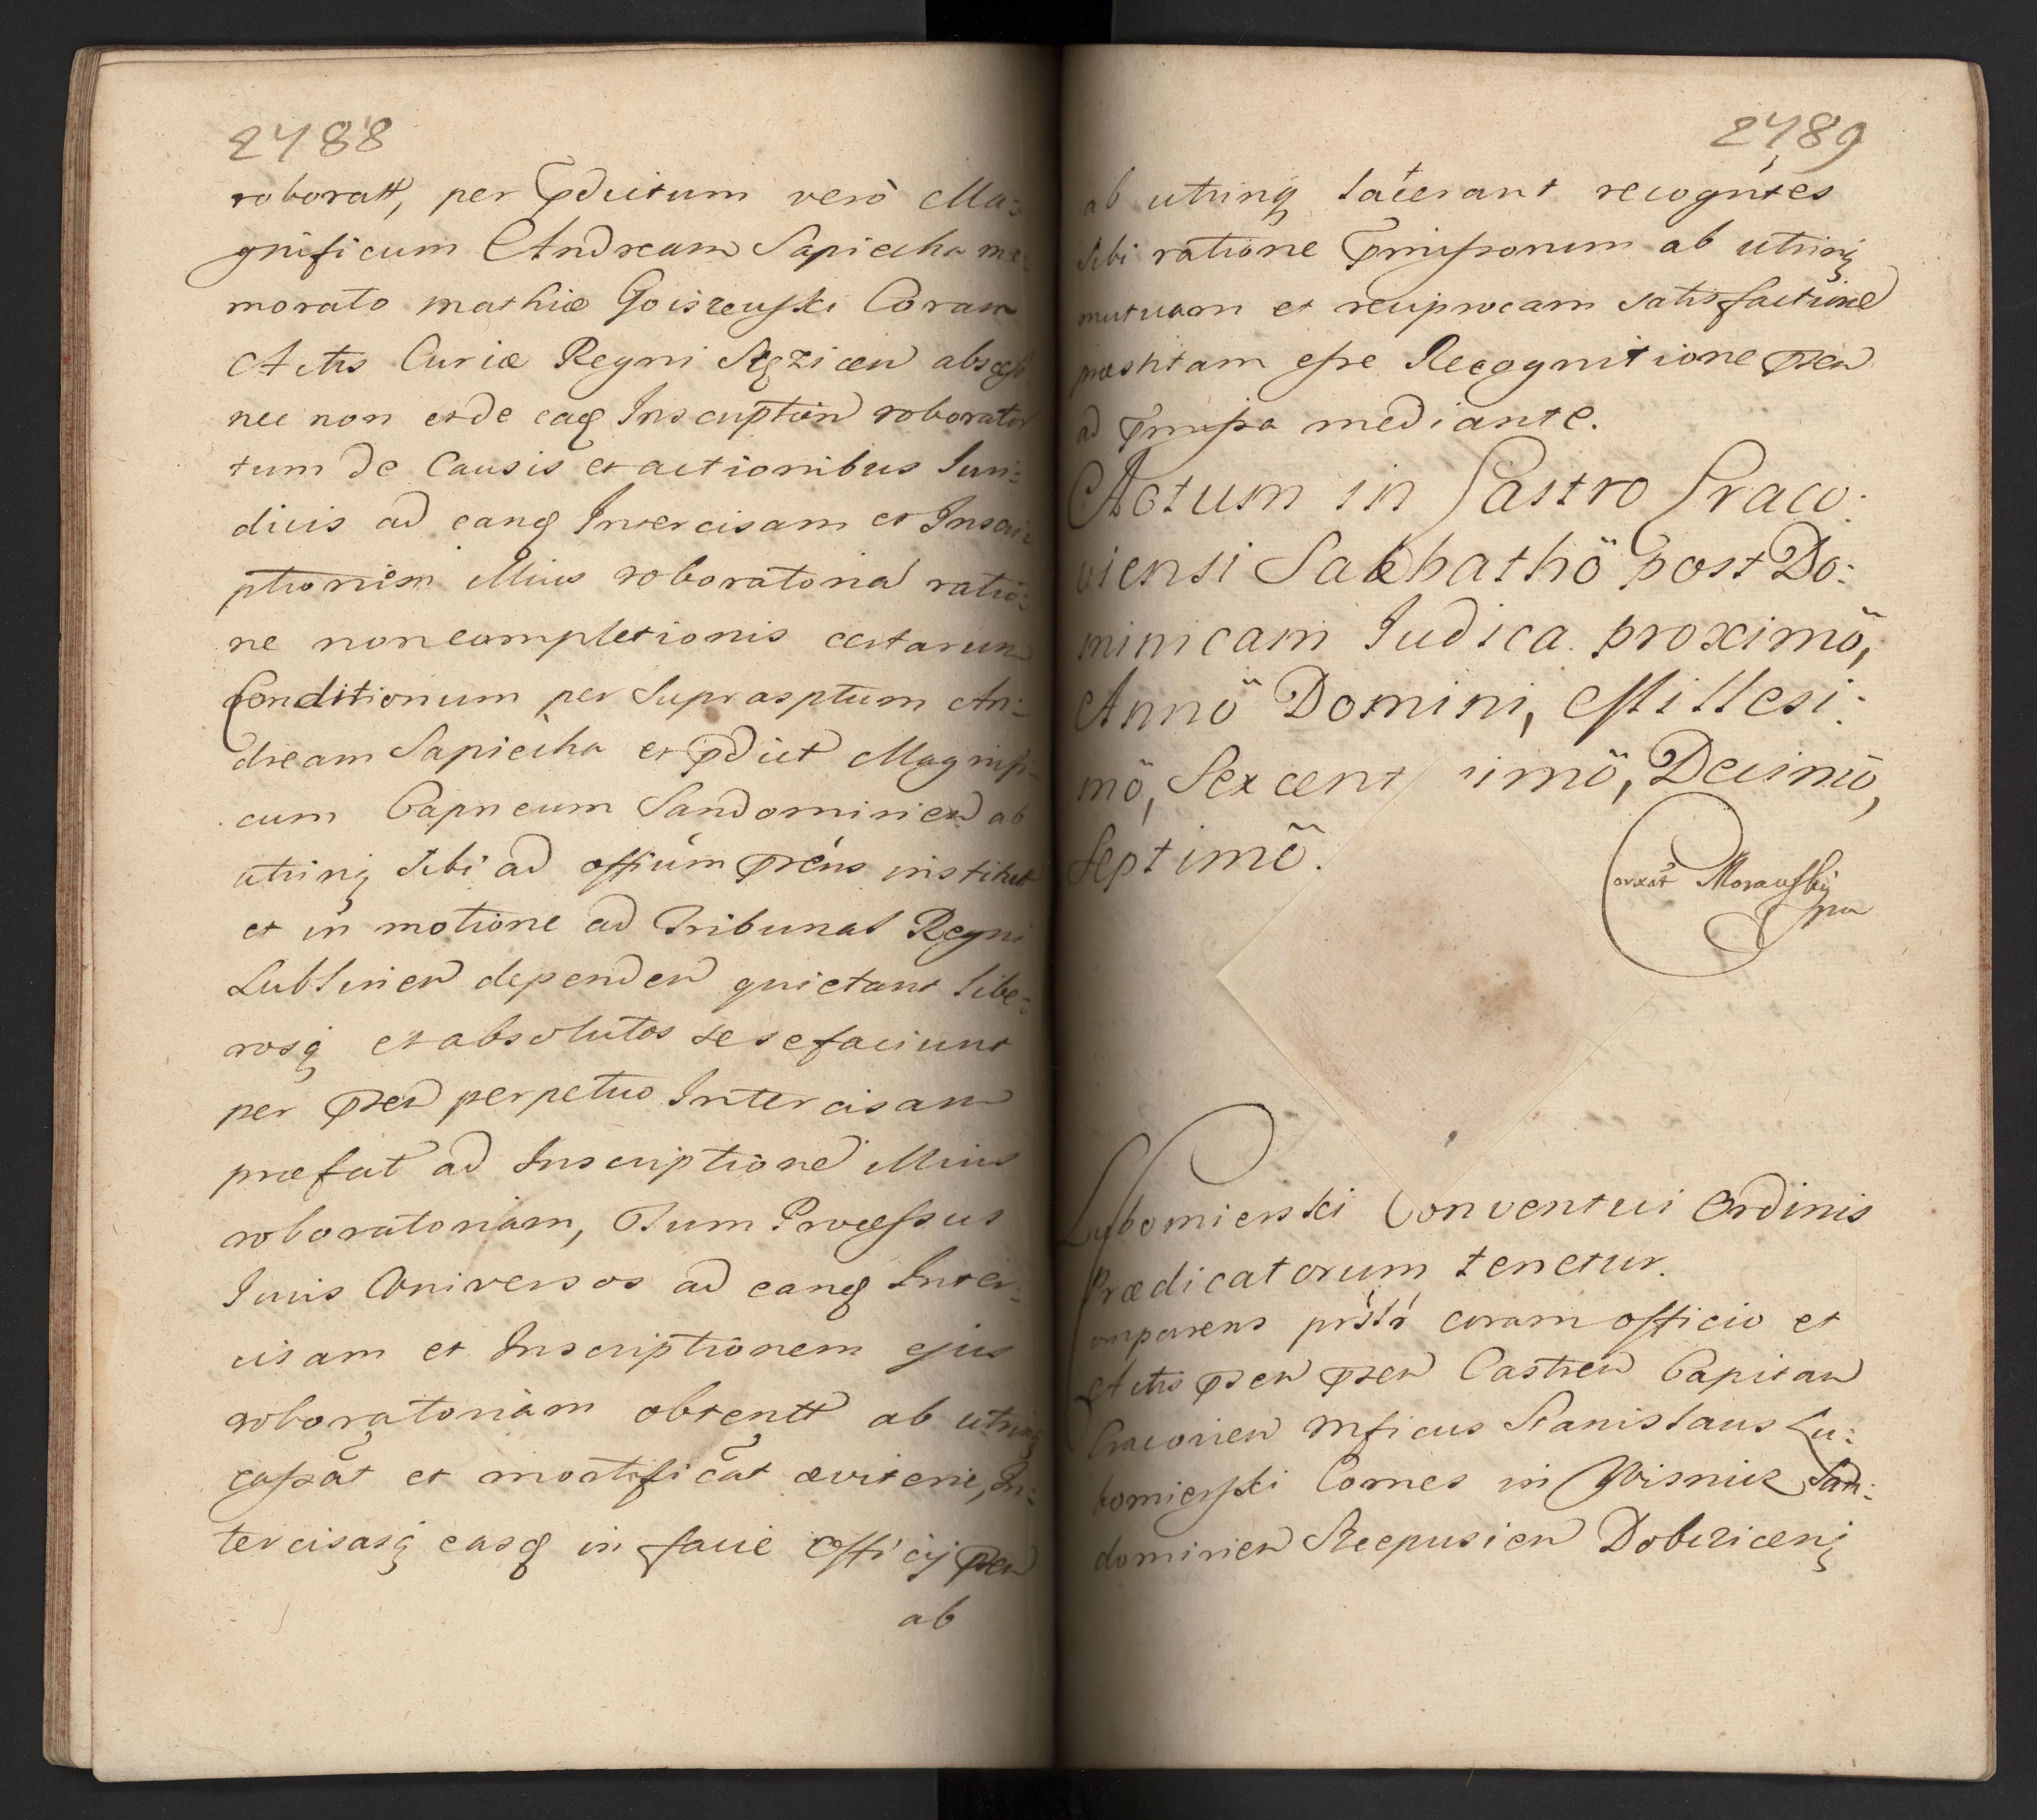 2488
roboratt, per pdictum verò Ma:
gnificum Andream Sapieiha me:
morato Mathiæ Goiszewski Coram
Actis Curiæ Regni Stęzicen
nec non et de eaq Inscription roborator
tum de Causis et actionibus Juri:
dicis ad eanq Intercisam et Inscri:
ptionem illius roboratoria ratio:
ne non completionis certarum
Conditionum per Suprasptum An:
dream Sapieiha et pdict Magnifi:
cum Capneum Sandomirien ab
utrinq Sibi ad offium præns institut
et in motione ad Tribunal Regni
Lublinen dependen quietant libe:
rosq et absolutos se se faciunt
per pren perpetuo Intercisam
præfat ad Inscriptione illius
roboratoriam, Tum Processus
Juris Universos ad eanq Inter:
cisam et Inscriptionem ejus
roboratoriam obtentt ab utrinq
cassat et mortificat æviterne, In:
tercisasq easq in facie Officij pren
ab
2489
ab utrinq lacerant recogntes
Sibi ratione pmissorum ab utrinq
mutuam et reciprocam satisfactione
præstitam esse Recognitione pren
ad pmissa mediante.
Actum in Castro Craco:
viensi Sabbathö post Do:
minicam Judica proximö,
Annö Domini, Millesi:
mö, Sexcent imö, Decimö,
Septimö.
Corxat Morawskij
mp
Lubomierski Conventui Ordinis
Prædicatorum tenetur.
Comparens coram officio et
Actis pren pren Castren Capitan
Cracovien Mficus Stanislaus Lu:
bomierski Comes in Wisnicz San:
domirien Scepusien Dobczicenq